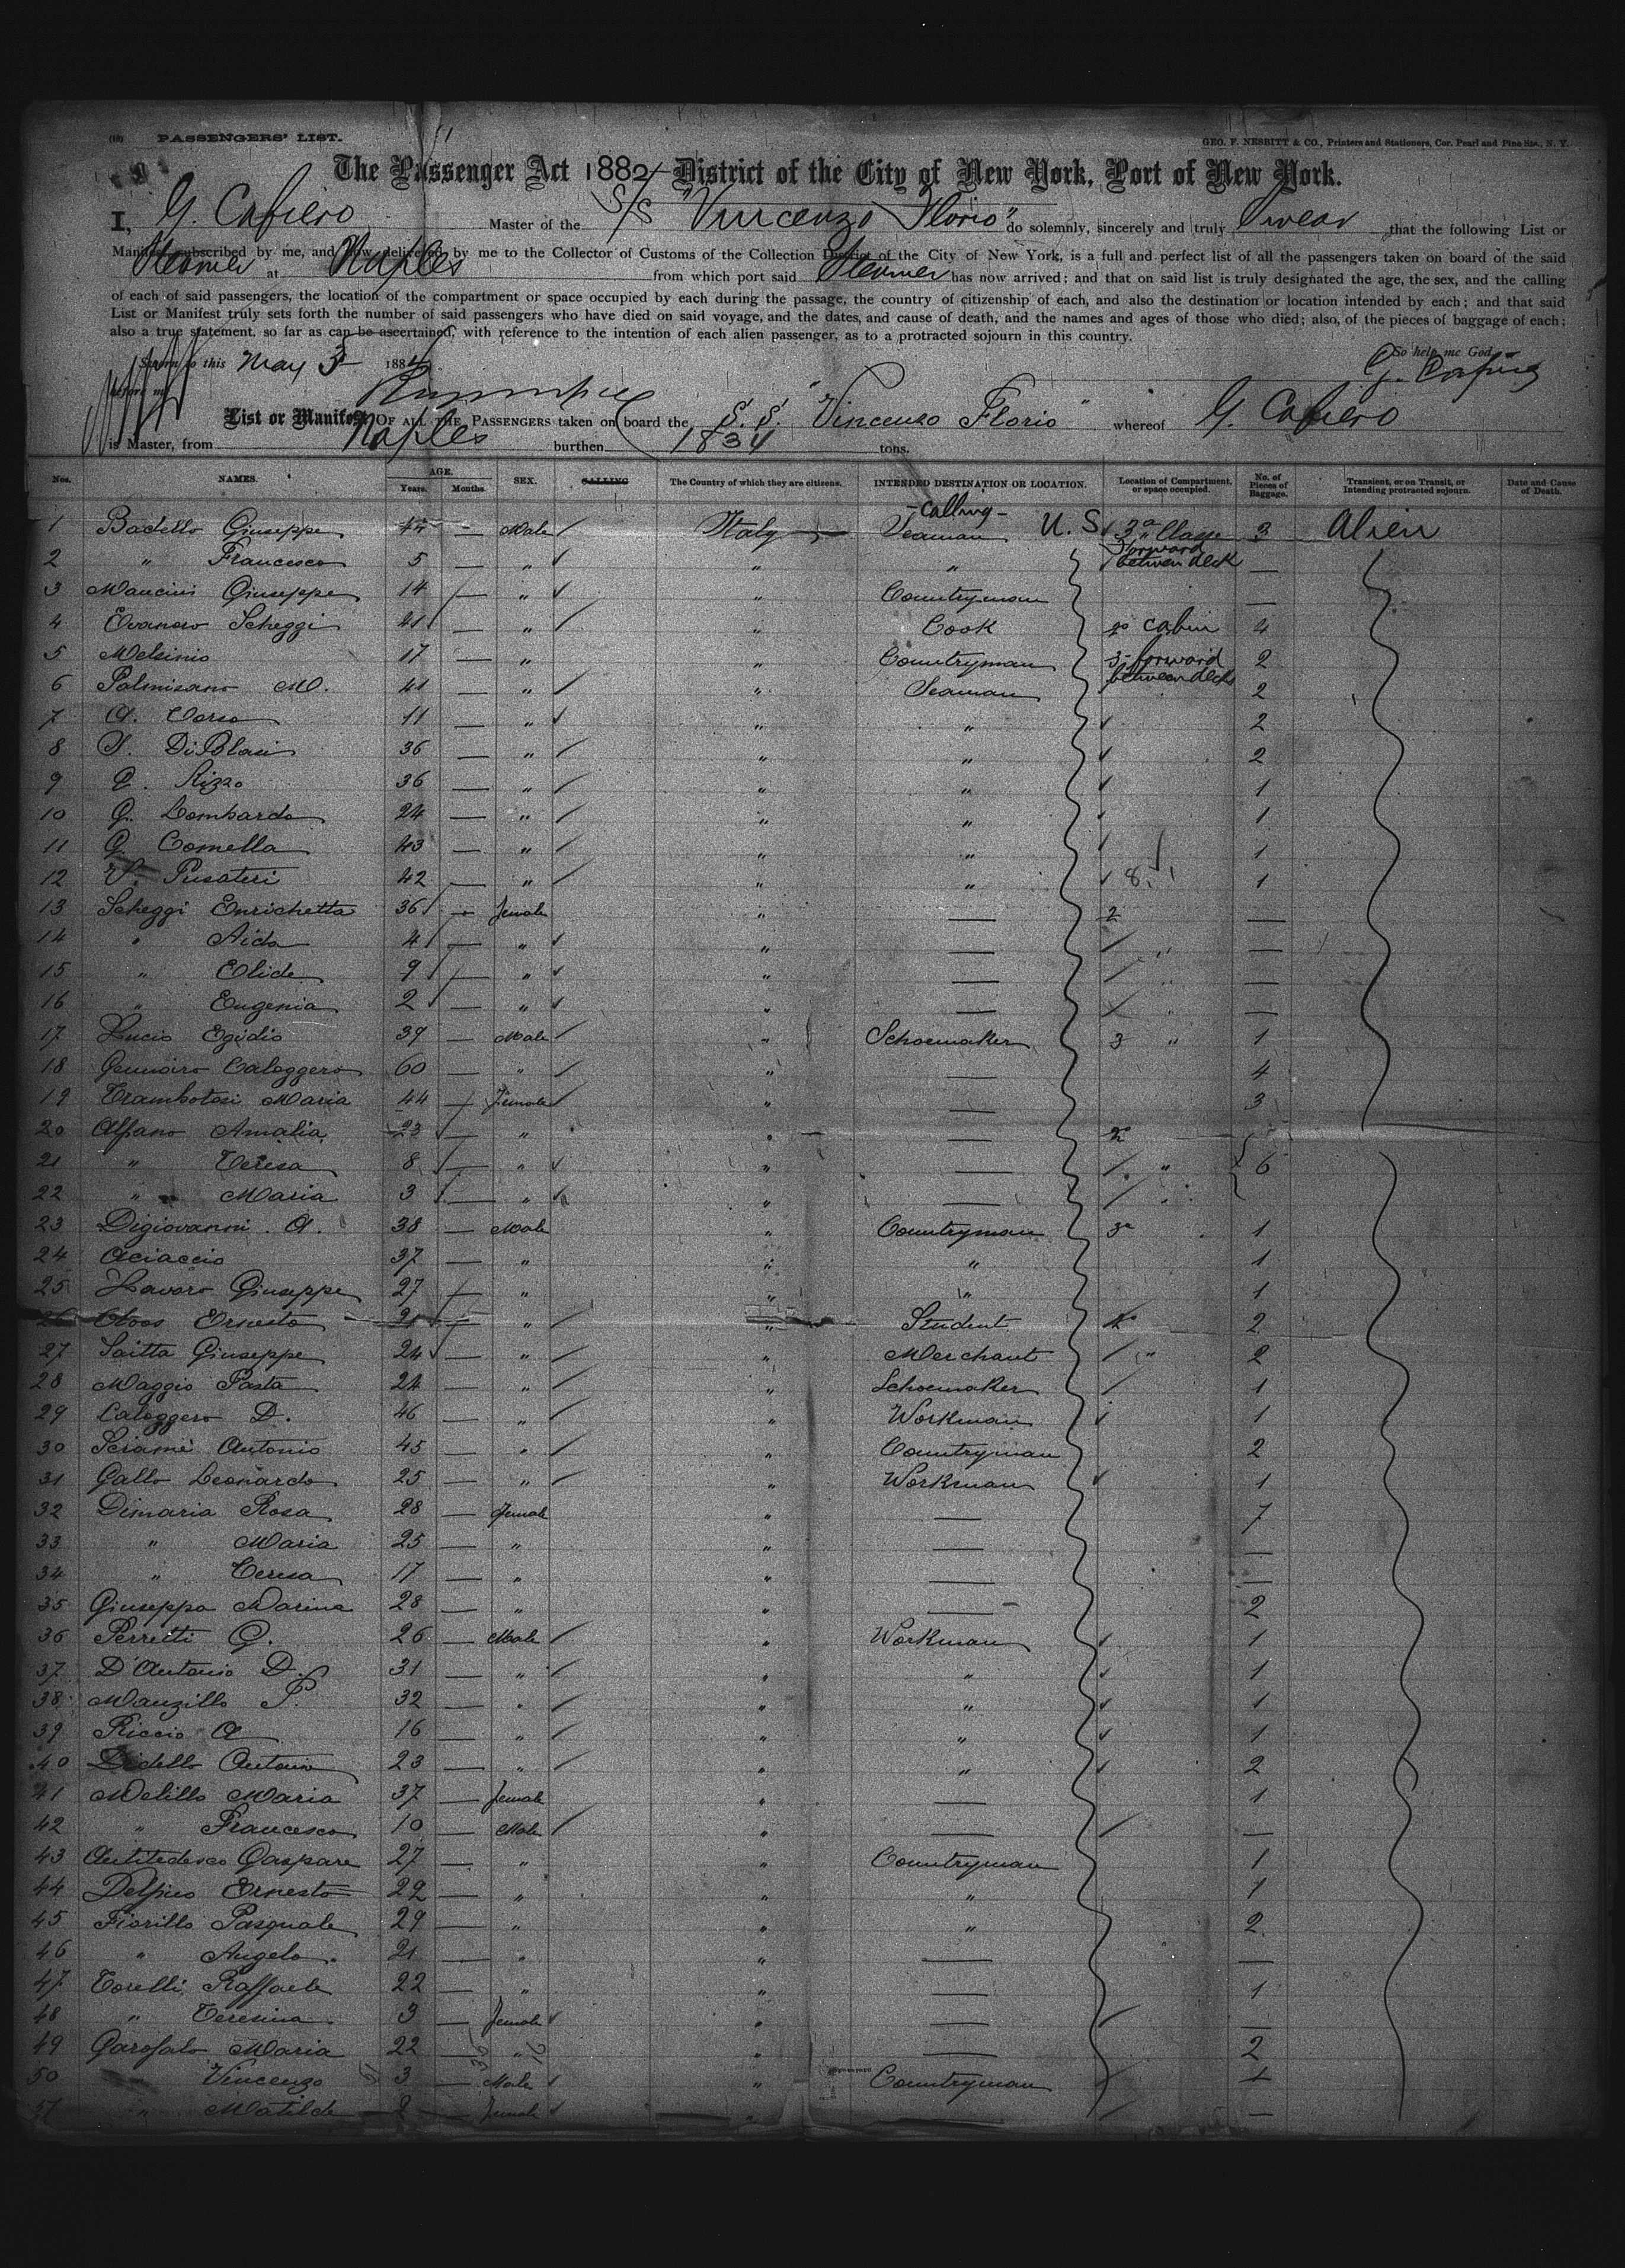 (10) PASSENGERS' LIST.
GEO. F. NESBITT & CO., Printers and Stationers, Cor. Pearl and Pine Sts., N. Y.
The Passenger Act 1882 District of the City of New York, Port of New York.
I, G. Cafiero Master of the S/S "Vincenzo Florio" do solemnly, sincerely and truly Swear that the following List or
Manifest subscribed by me, and now delivered by me to the Collector of Customs of the Collection District of the City of New York, is a full and perfect list of all the passengers taken on board of the said
Steamer at Naples from which port said Steamer has now arrived; and that on said list is truly designated the age, the sex, and the calling
of each of said passengers, the location of the compartment or space occupied by each during the passage, the country of citizenship of each, and also the destination or location intended by each; and that said
List or Manifest truly sets forth the number of said passengers who have died on said voyage, and the dates, and cause of death, and the names and ages of those who died; also, of the pieces of baggage of each;
also a true statement, so far as can be ascertained, with reference to the intention of each alien passenger, as to a protracted sojourn in this country.
So help me God
Sworn to this May 3 188
G. Cafiero
before me
List or Manifest OF ALL THE PASSENGERS taken on board the S. S. "Vincenzo Florio" whereof G. Cafiero
is Master, from Naples burthen 1834 tons.
Nos. NAMES. AGE. Years. Months. SEX. CALLING The Country of which they are citizens. INTENDED DESTINATION OR LOCATION. Location of Compartment, or space occupied. No. of Pieces of Baggage. Transient, or on Transit, or Intending protracted sojourn. Date and Cause of Death.
- Calling -
1 Badello Giuseppe — Male Italy Seaman U.S. 3a Classe 3 Alien
2 " Francesco 5 — " " " Forward between deck —
3 Mancini Giuseppe 14 — " " Countryman —
4 Scheggi 41 — " " Cook 2a cabin 4
5 Melsinio 17 — " " Countryman 3a forward between decks 2
6 Palmisano M. 41 — " " Seaman 2
7 A. Corso 11 — " " " 2
8 S. DiBlasi 36 — " " " 2
9 Rizzo 36 — " " " 1
10 G. Lombardo 24 — " " " 1
11 G. Comella 43 — " " " 1
12 Pusateri 42 — " " " 1
13 Scheggi Enrichetta 36 — female " — 2 —
14 " Aida 4 — " " — " —
15 " Elide 9 — " " — —
16 " Eugenia 2 — " " — " —
17 Lucio Egidio 39 — Male " Schoemaker 3 " 1
18 Caloggero 60 — " " — 4
19 Maria 44 — Female " — 3
20 Alfano Amalia 23 — " " — 2a
21 " Teresa 8 — " " — " 6
22 " Maria 3 — " " — "
23 Digiovanni A. 38 — Male " Countryman 3a 1
24 Aciaccio 37 — " " " 1
25 Giuseppe 27 — " " " 1
26 Ernesto 21 — " " Student 2a 2
27 Saitta Giuseppe 24 — " " Merchant " 2
28 Maggio Pasta 24 — " " Schoemaker 1
29 Caloggero D. 46 — " " Workman 1
30 Sciamè Antonio 45 — " " Countryman 2
31 Gallo Leonardo 25 — " " Workman 1
32 Dimaria Rosa 28 — female " — 7
33 " Maria 25 — " " — —
34 " Teresa 17 — " " — —
35 Giuseppa Marina 28 — " " — 2
36 Perretti G. 26 — Male " Workman 1
37 D'Antonio D. 31 — " " " 1
38 Manzillo P. 32 — " " " 1
39 Riccio A 16 — " " " 1
40 Antonio 23 — " " " 2
41 Melillo Maria 37 — female " — 1
42 " Francesco 10 — Male " — —
43 Gaspare 27 — " " Countryman 1
44 Ernesto 29 — " " " 1
45 Fiorillo Pasquale 29 — " " " 2
46 " Angelo 21 — " " — —
47 Torelli Raffaele 22 — " " — 1
48 " Teresina 3 — female " — —
49 Garofalo Maria 22 — " " — 2
50 " Vincenzo 3 — Male " Countryman 1
51 " Matilde 2 — female " —